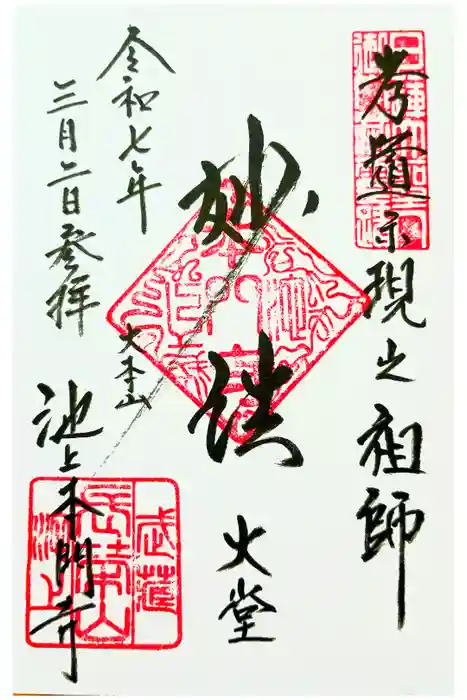 孝道示現之祖師
妙法
大堂
令和七年
三月二日登拝
大本山
池上本門寺
武蔵
長栄山
池上